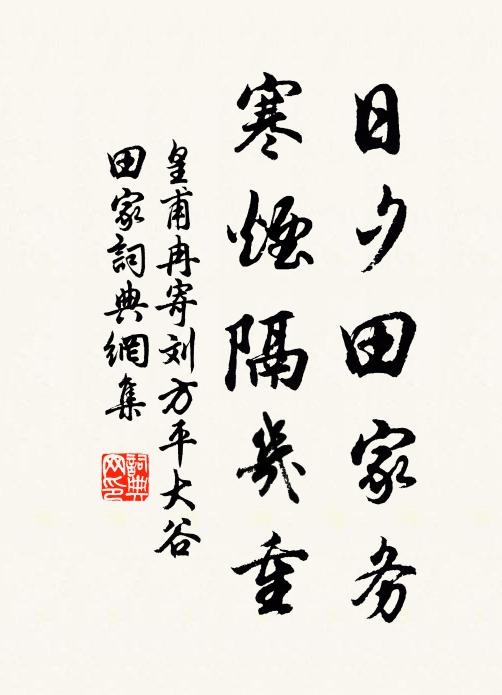 日夕田家务
寒煙隔幾重
皇甫冉寄刘方平大谷
田家詞典網集
詞典
网印